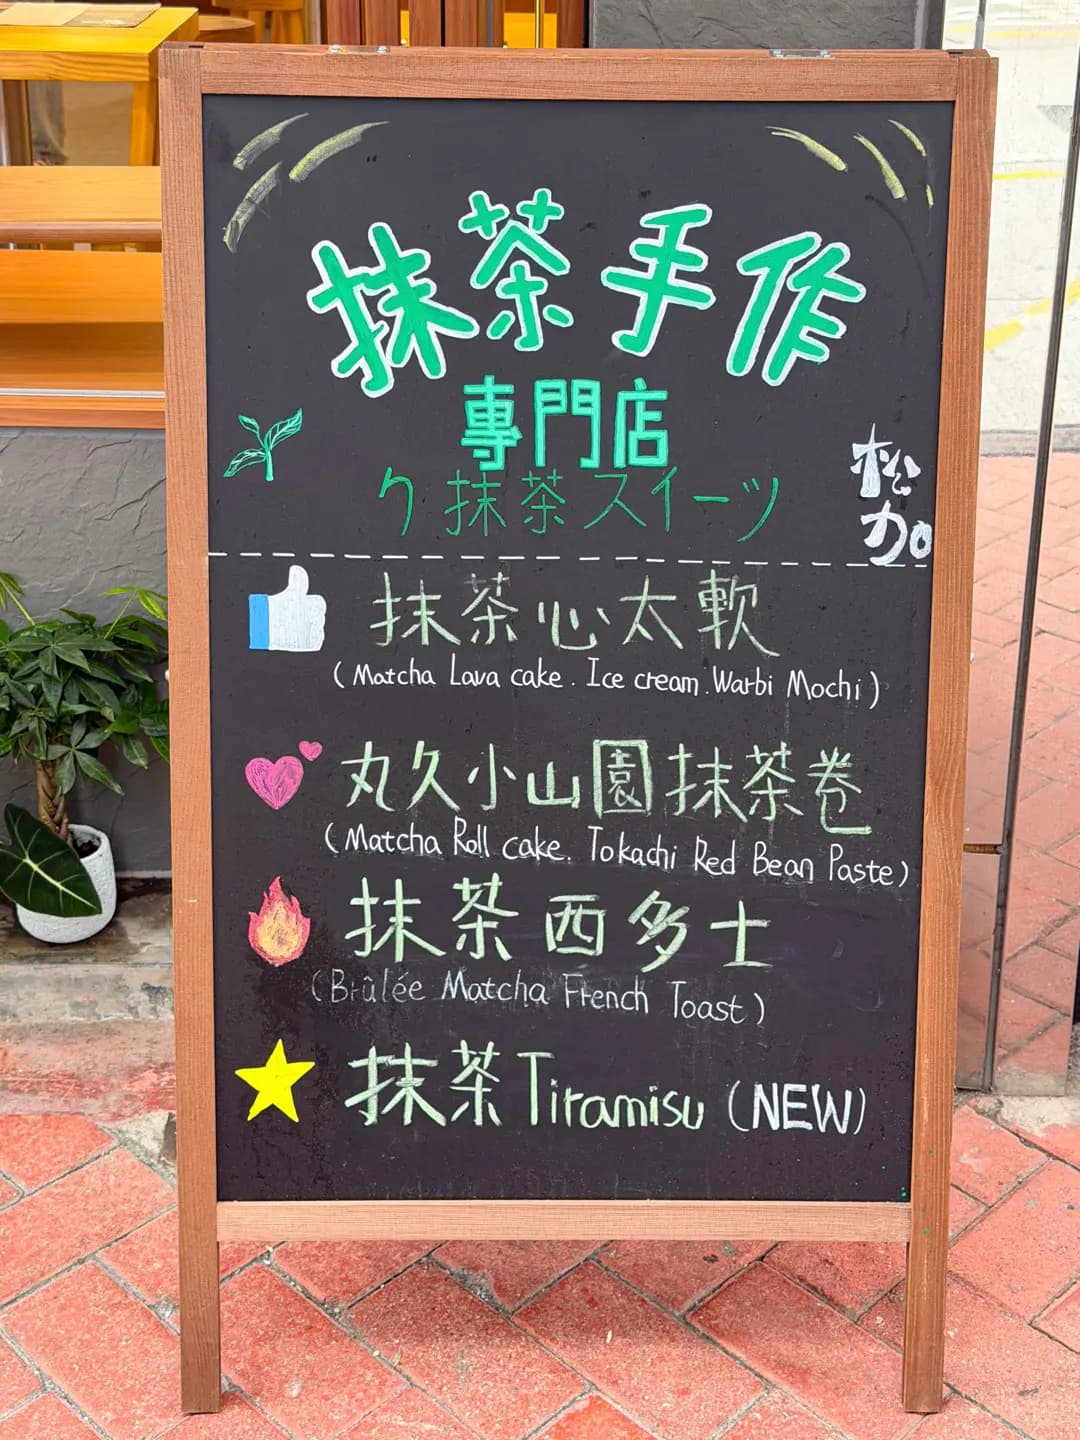 抹茶手作
專門店
ク抹茶スイーツ
松
加
抹茶心太軟
(Matcha Lava cake. Ice cream. Warbi Mochi)
丸久小山園抹茶卷
(Matcha Roll cake. Tokachi Red Bean Paste)
抹茶西多士
(Brûlée Matcha French Toast)
抹茶Tiramisu (NEW)